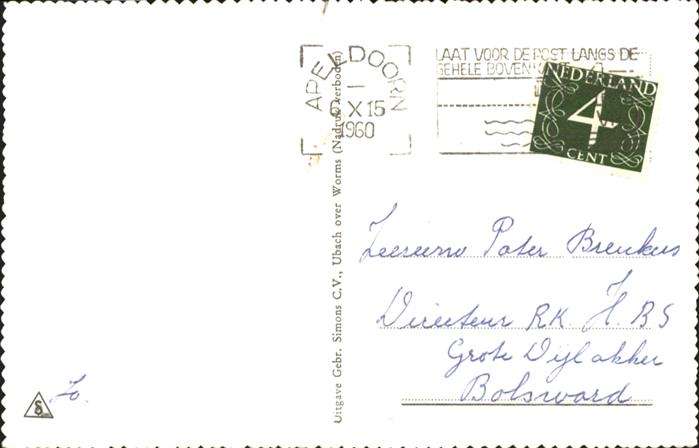 APELDOORN
X 15
1960
LAAT VOOR DE POST LANGS DE
GEHELE BOVEN
NEDERLAND
4
CENT
Uitgave Gebr. Simons C.V., Ubach over Worms (Nadruk verboden)
Zeereerw Pater Breukers
Directeur R.K. H.B.S
Grote Dijlakker
Bolsward
Jo.
S